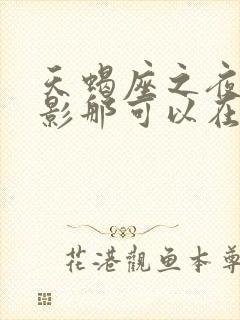 天蝎座之夜
影那可以在
花港觀鱼本尊